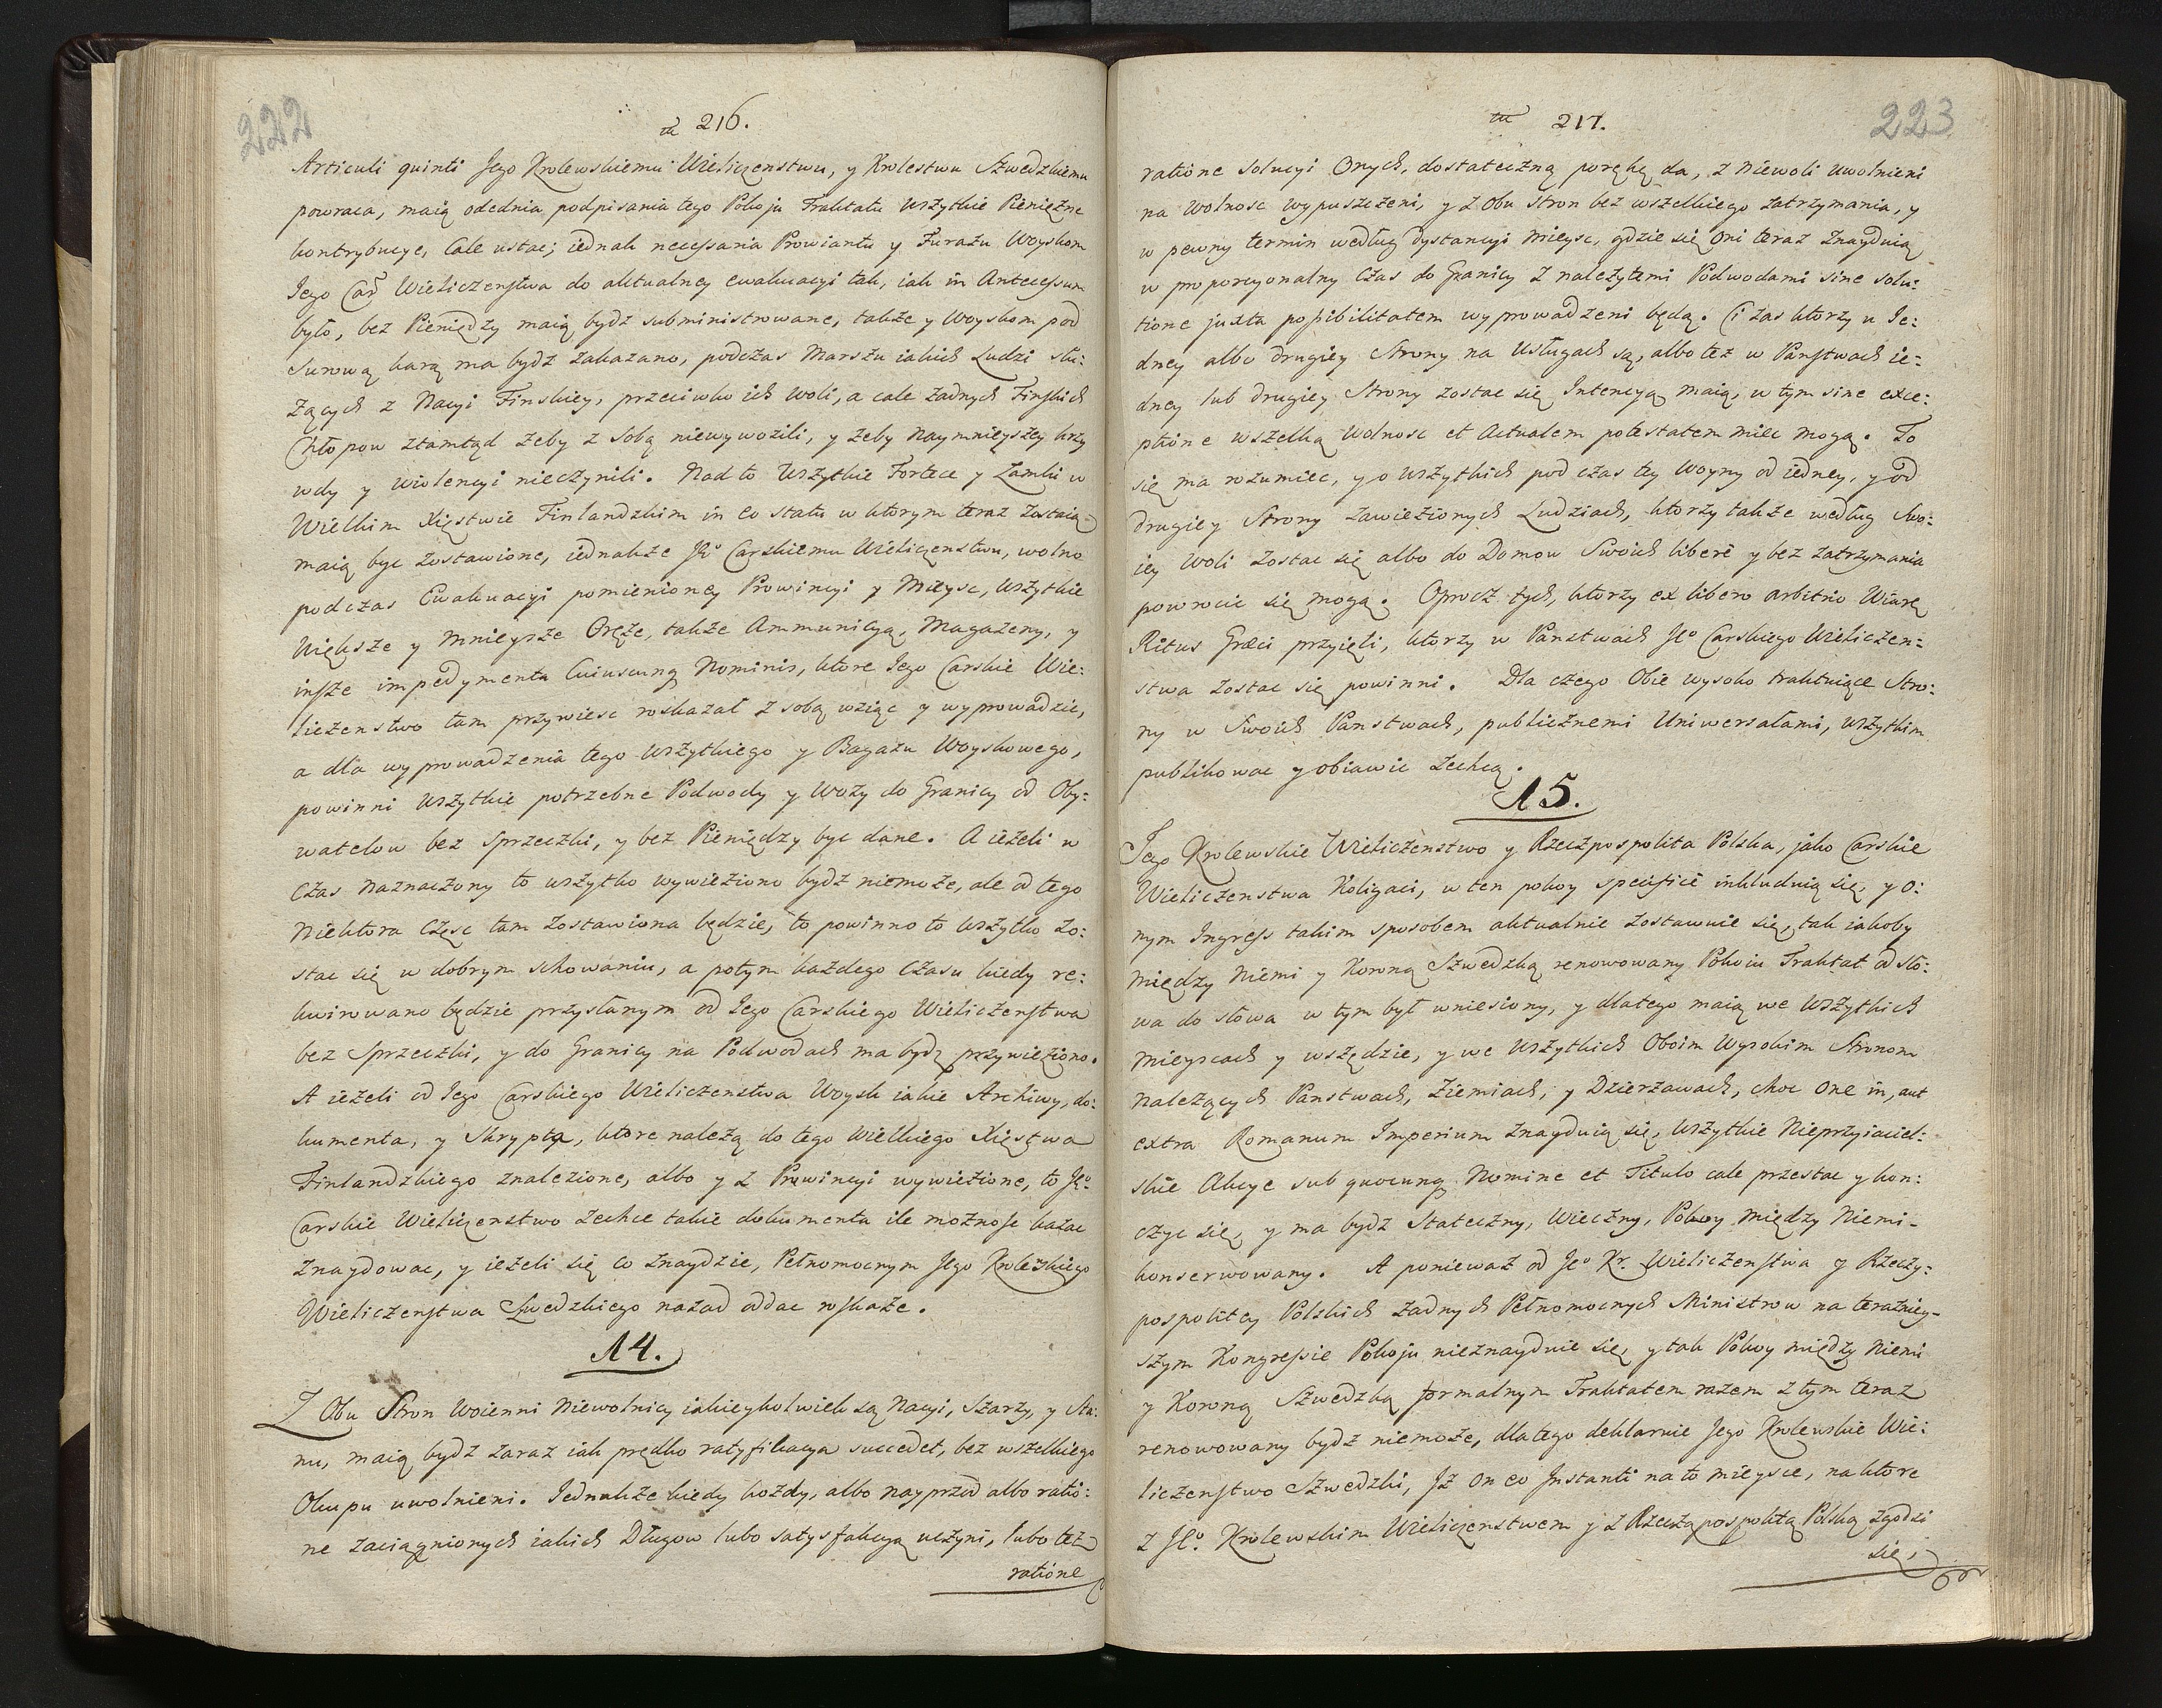 222
216.
Articuli quinti Jego Krolewskiemu Wieliczenstwu, y Krolestwu Szwedzkiemu
powraca, maią odednia podpisania tego Pokoju Traktatu wszytkie Pieniężne
kontrybucye, Cale ustac; iednak necessaria Prowiantu y Furażu Woyskom
Jego Car Wieliczenstwa do aktualney ewakuacyi tak, iak in Antecessum
było, bez Pieniędzy maią bydz subministrowane, także y Woyskom pod
surową karą ma bydz zakazano, podczas Marszu iakich Ludzi słu:
żących z Nacyi Finskiey, przeciwko ich woli, a cale żadnych Finskich
Chłopow ztamtąd żeby z sobą niewywozili, y żeby naymnieyszey krzy
wdy y wiolencyi nieczynili. Nad to wszytkie Fortece y Zamki w
Wielkim Xięstwie Finlandzkim in eo statu w ktorym teraz zostaią
maią byc zostawione, iednakże JKo Carskiemu Wieliczenstwu, wolno
podczas Ewakuacyi pomienioney Prowincyi y Mieysc, wszytkie
większe y mnieysze Oręże, także Ammunicyą, Magazeny, y
insze impedymenta Cuiuscunq Nominis, ktore Jego Carskie Wie:
liczenstwo tam przywiesc roskazał z sobą wziąc y wyprowadzic,
a dla wyprowadzenia tego wszytkiego y Bagażu Woyskowego,
powinni wszytkie potrzebne Podwody y Wozy do Granicy od Oby:
watelow bez sprzeczki, y bez Pieniędzy byc dane. A ieżeli w
Czas naznaczony to wszytko wywieziono bydz niemoże, ale od tego
niektora Częsc tam zostawiona będzie, to powinno to wszytko zo:
stac się w dobrym schowaniu, a potym każdego Czasu kiedy re:
kwirowano będzie przysłanym od Jego Carskiego Wieliczenstwa
bez sprzeczki, y do Granicy na Podwodach ma bydz przywieziono.
A ieżeli od Jego Carskiego Wieliczenstwa Woysk iakie Archiwy, do:
kumenta, y Skrypta, ktore należą do tego Wielkiego Xięstwa
Finlandzkiego znalezione, albo y z Prowincyi wywiezione, to Jeo
Carskie Wieliczenstwo zechce takie dokumenta ile możnosc kazac
znaydowac, y ieżeli się co znaydzie, Pełnomocnym Jego Krolewskiego
Wieliczenstwa Szwedzkiego nazad oddac roskaże.
14.
Z Obu Stron Woienni Niewolnicy iakieykolwiek są Nacyi, Szarży, y Sta:
nu, maią bydz zaraz iak prędko ratyfikacya succedet, bez wszelkiego
Okupu uwolnieni. Jednakże kiedy każdy, albo nayprzod albo ratio:
ne zaciągnionych iakich Długow lubo satysfakcyą uczyni, lubo też
ratione
217.
223
ratione solucyi Onych, dostateczną porękę da, z niewoli uwolnieni
na wolnosc wypuszczeni, y z Obu stron bez wszelkiego zatrzymania, y
w pewny termin według dystancyi mieysc, gdzie się oni teraz znayduią
w proporcyonalny Czas do Granicy z należytemi Podwodami sine solu:
tione juxta possibilitatem wyprowadzeni będą. Ci zas ktorzy u Je:
dney albo drugiey Strony na usługach są, albo też w Panstwach ie:
dney lub drugiey Strony zostac się Intencyą maią, w tym sine exce:
ptione wszelką Wolnosc et Actualem potestatem miec mogą. To
się ma rozumiec, y o wszytkich pod czas tey Woyny od iedney, y od
drugiey Strony zawiezionych Ludziach, ktorzy także według swo:
iey Woli zostac się albo do Domow Swoich liberè y bez zatrzymania
powrocic się mogą. Oprocz tych, ktorzy ex libero arbitrio Wiarę
Ritus Græci przyięli, ktorzy w Panstwach Jeo Carskiego Wieliczen:
stwa zostac się powinni. Dla czego Obie wysoko traktuiące Stro:
ny w Swoich Panstwach, publicznemi Uniwersałami, wszytkim
publikowac y obiawic zechcą.
15.
Jego Krolewskie Wieliczenstwo y Rzeczpospolita Polska, jako Carskie
Wieliczenstwa Koligaci, w ten pokoy specificè inkluduią się, y o:
nym Ingress takim sposobem aktualnie zostawuie się, tak iakoby
między Niemi y Koroną Szwedzką renowowany Pokoiu Traktat od sło:
wa do słowa w tym był wniesiony, y dlatego maią we wszytkich
mieyscach y wszędzie, y we wszytkich Oboim Wysokim Stronom
należących Panstwach, Ziemiach, y Dzierżawach, choc one in, aut
extra Romanum Imperium znayduią się, wszytkie Nieprzyiaciel:
skie Akcye sub quocunq Nomine et Titulo cale przestac y kon:
czyc się, y ma bydz Stateczny, Wieczny, Pokoy między Niemi
konserwowany. A ponieważ od Jeo Kr. Wieliczenstwa y Rzeczy:
pospolitey Polskich żadnych Pełnomocnych Ministrow na teraźniey-
szym Kongressie Pokoju nieznayduie się, y tak Pokoy między Niemi
y Koroną Szwedzką formalnym Traktatem razem z tym teraz
renowowany bydz niemoże, dlatego deklaruie Jego Krolewskie Wie:
liczenstwo Szwedzki, Jż on eo Instanti na to mieysce, na ktore
z Jeo. Krolewskim Wieliczenstwem y z Rzecząpospolitą Polską zgodzi
się,